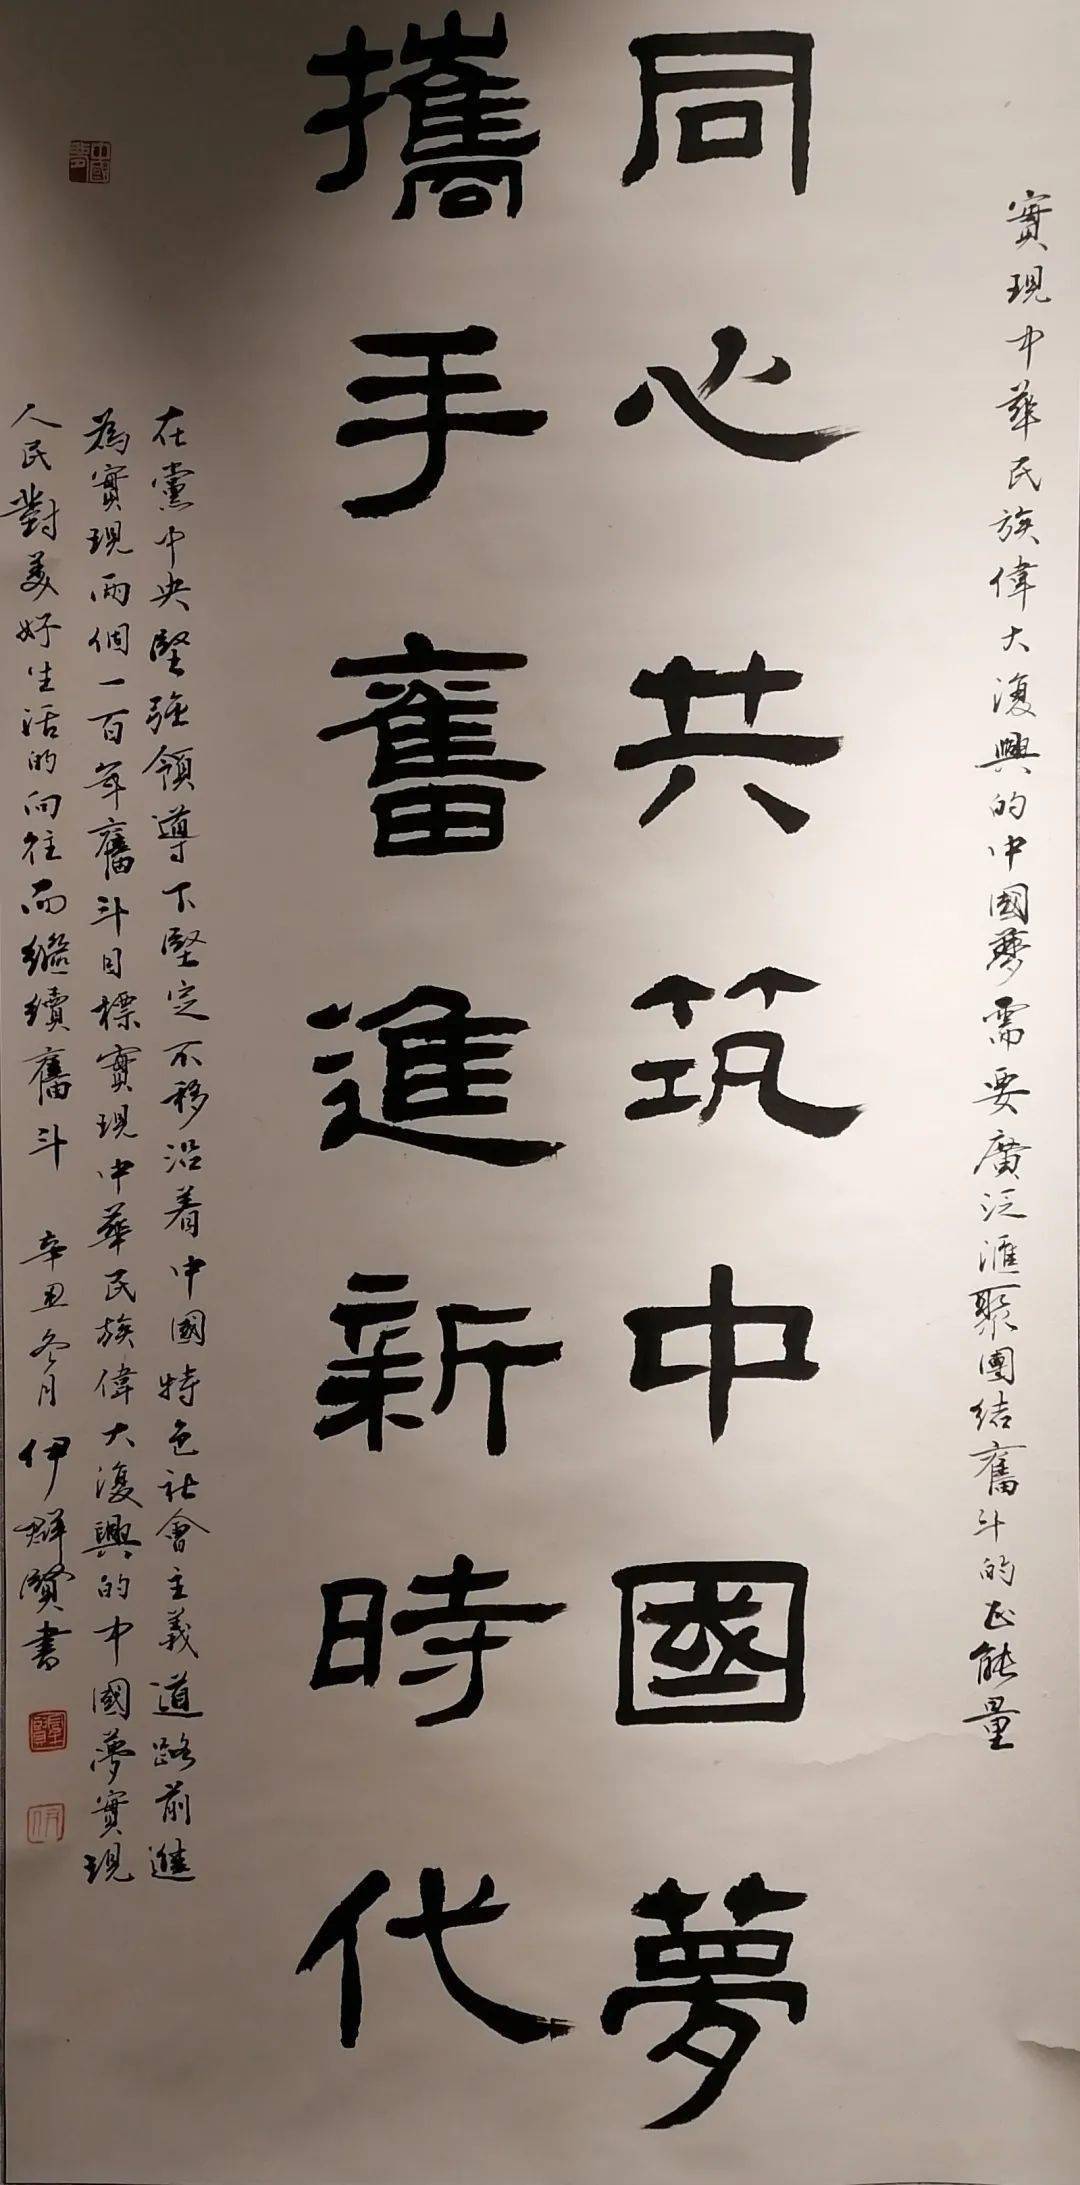 實現中華民族偉大復興的中國夢需要廣泛滙聚團結奮斗的正能量
同心共筑中國夢
攜手奮進新時代
在黨中央堅強領導下堅定不移沿着中國特色社會主義道路前進
為實現兩個一百年奮斗目標實現中華民族偉大復興的中國夢實現
人民對美好生活的向往而繼續奮斗 辛丑冬月 伊群賢書
中國夢
群賢